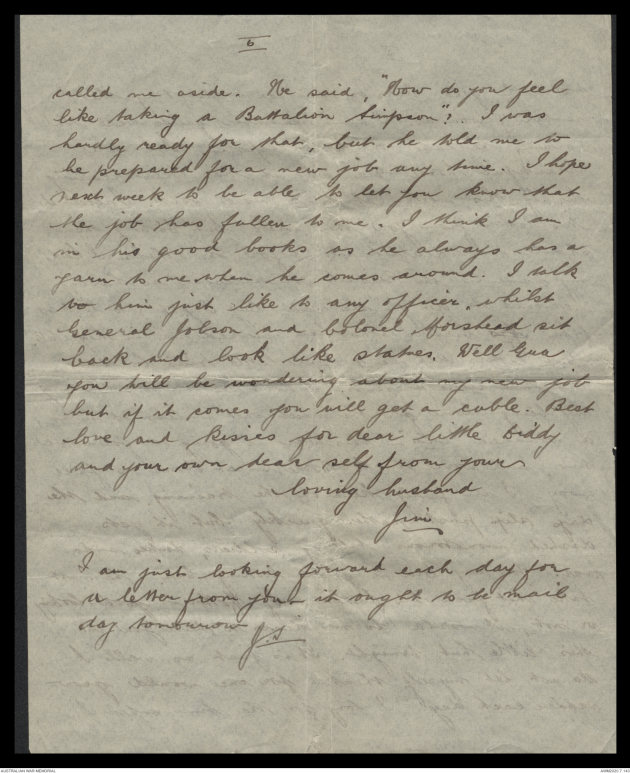 6
called me aside. He said, "How do you feel
like taking a Battalion Simpson"? I was
hardly ready for that, but he told me to
be prepared for a new job any time. I hope
next week to be able to let you know that
the job has fallen to me. I think I am
in his good books as he always has a
yarn to me when he comes around. I talk
to him just like to any officer, whilst
General Jobson and Colonel Morshead sit
back and look like statues. Well Eva
you will be wondering about my new job
but if it comes you will get a cable. Best
love and kisses for dear little Biddy
and your own dear self from your
loving husband
Jim
I am just looking forward each day for
a letter from you - it ought to be mail
day tomorrow J.S
AUSTRALIAN WAR MEMORIAL